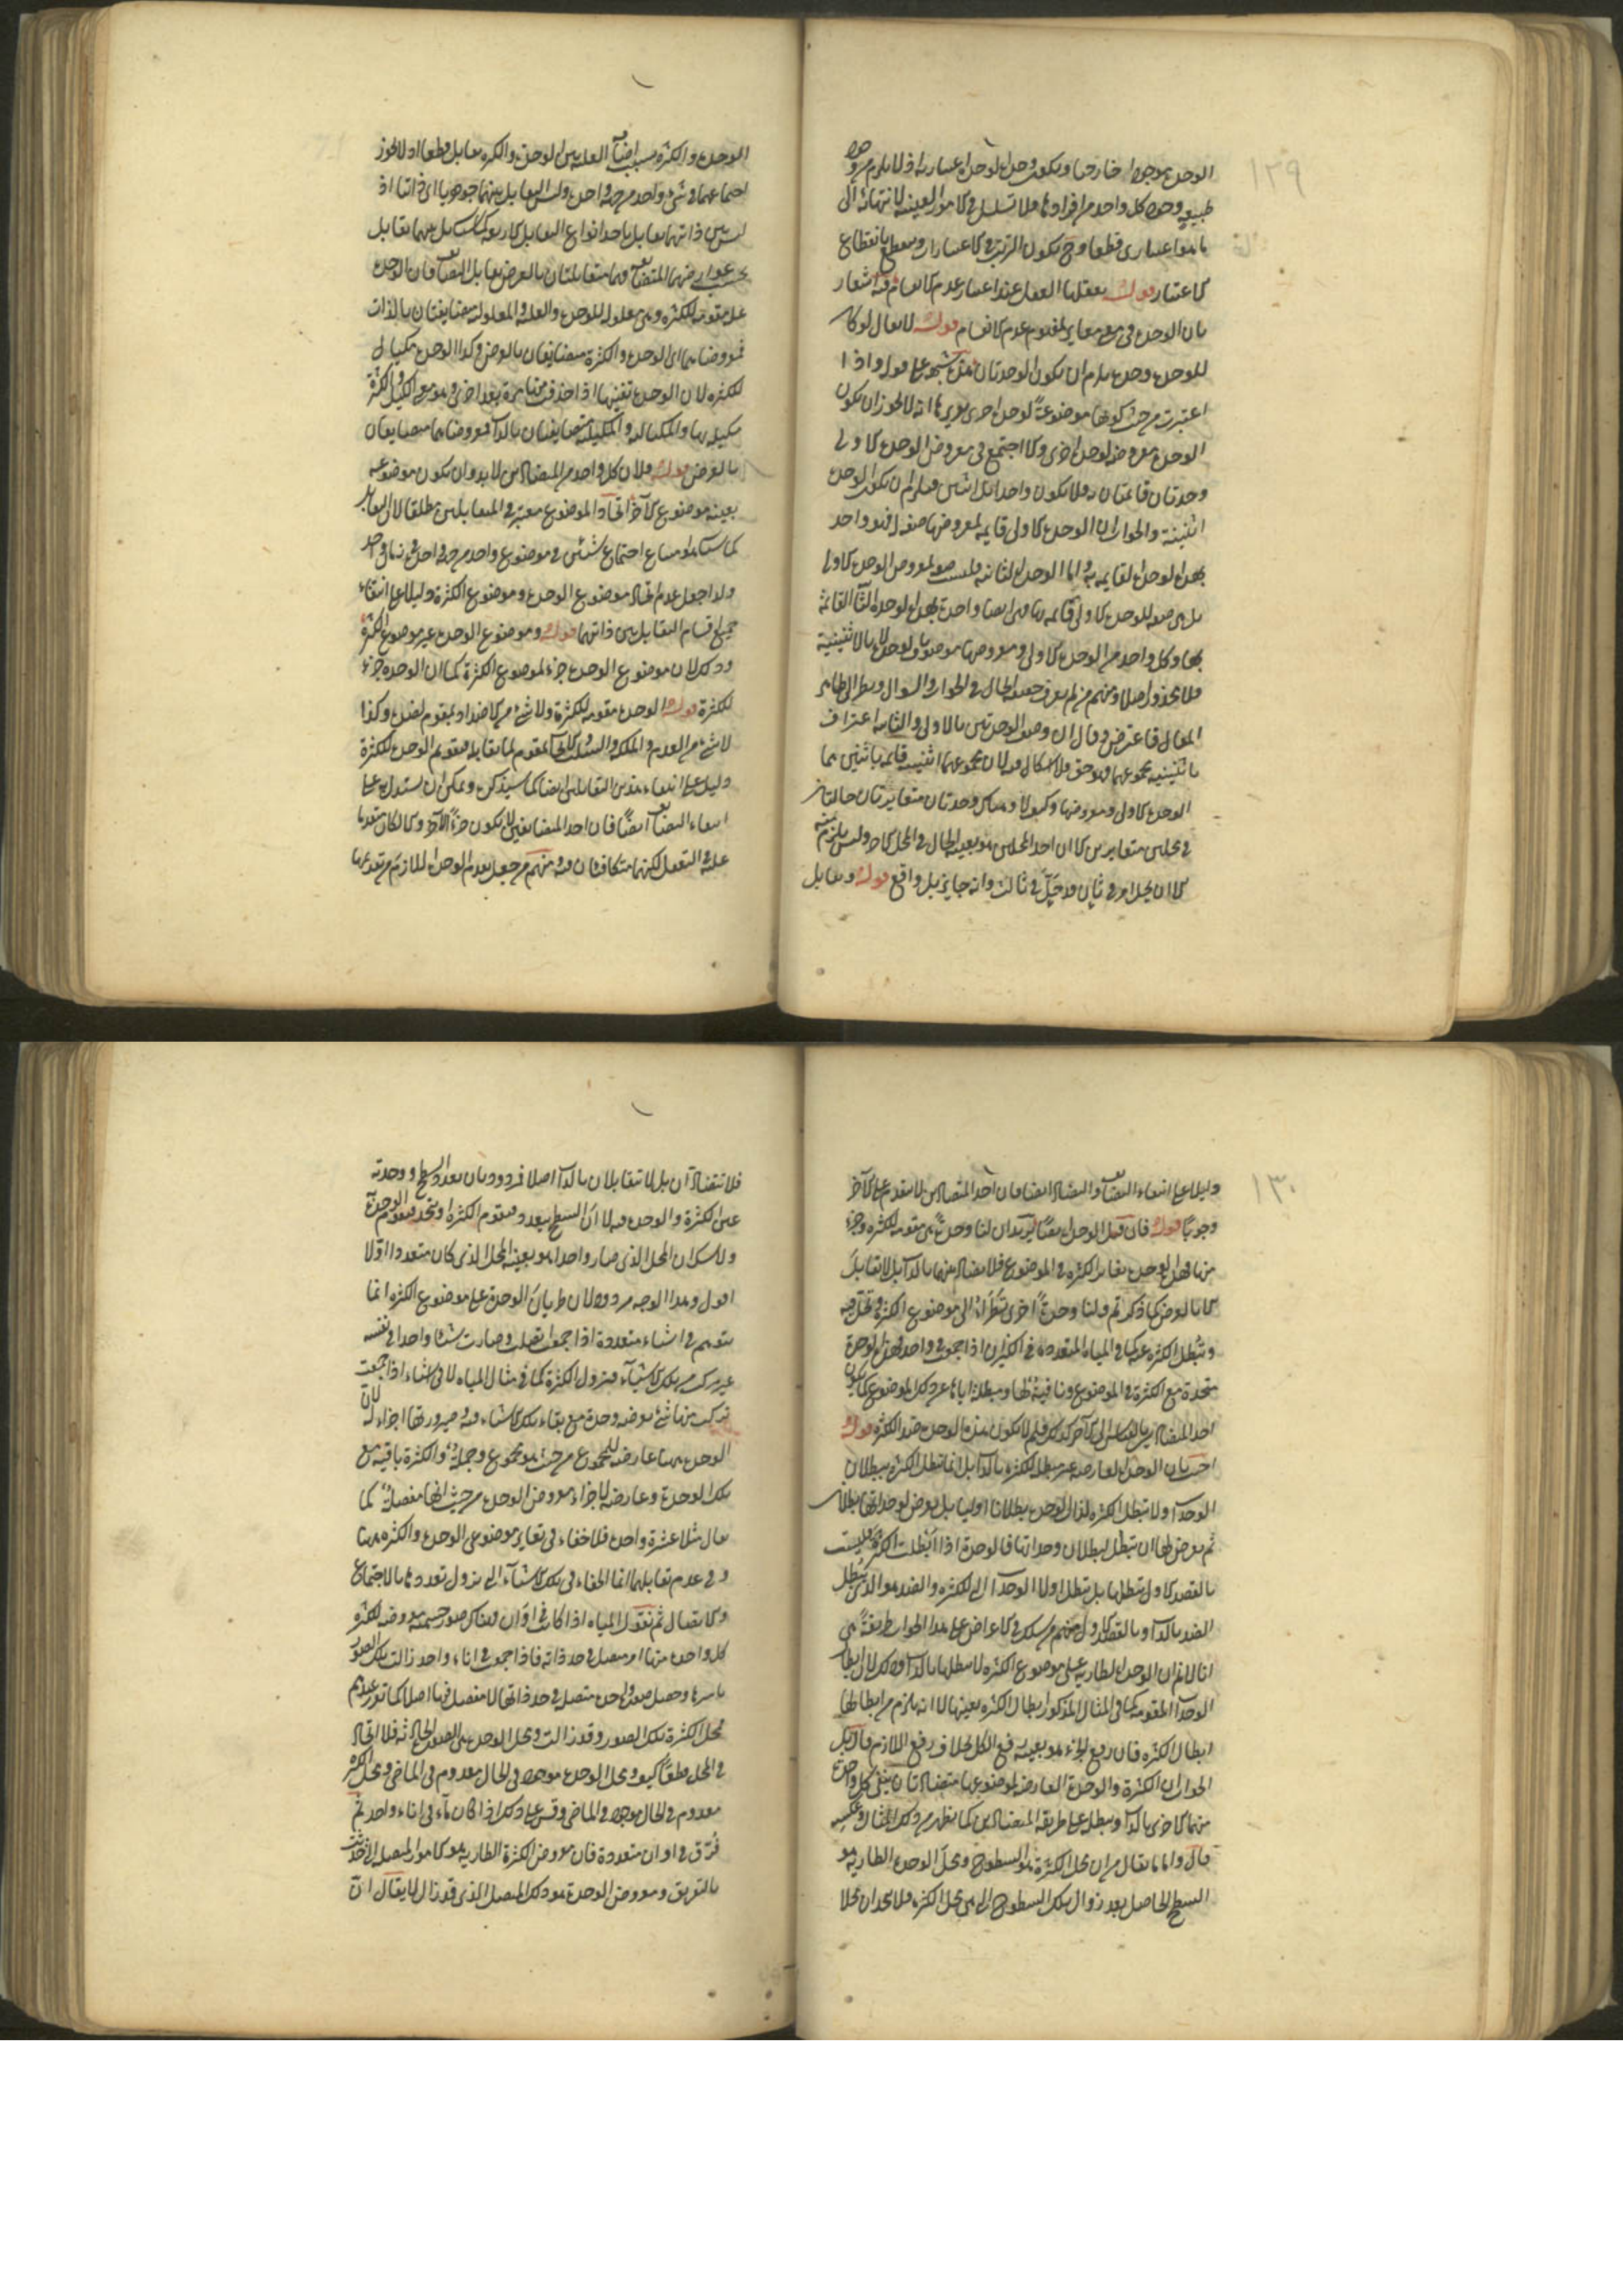 ١٢٩
الوحدة موجودا خارجيا ويكون وحدة الوحدة اعتبارية اذ لا يلزم من وجود
طبيعة وجود كل واحد من افرادها ولا تسلسل في الامور العينية لانتهائه الى
ما هو اعتباري قطعا وح يكون الترتب في الاعتبارات وينقطع بانقطاع
الاعتبار قوله يعقلها العقل عند اعتبار عدم الانقسام فيه اشعار
بان الوحدة هي مغايرة لمفهوم عدم الانقسام قوله لا يقال لو كان
للوحدة وحدة يلزم ان يكون الوحدتان هذه شبهة على قوله واذا
اعتبرت من حيث كونها موضوعة لوحدة اخرى يريد بها انه لا يجوز ان يكون
الوحدة معروضة لوحدة اخرى والا اجتمع في معروض الوحدة الاولى
وحدتان قائمتان به فلا يكون واحدا بل اثنين فيلزم ان يكون الوحدة
اثنينية والجواب ان الوحدة الاولى قايمة بمعروضها صفة له فهو واحد
بهذه الوحدة القايمة به واما الوحدة الثانية فليست صفة لمعروض الوحدة الاولى
بل هي صفة للوحدة الاولى قائمة بها فهي ايضا واحدة بهذه الوحدة الثانية القائمة
بها وكل واحد من الوحدة الاولى ومعروضها موصوف بالوحدة لا بالاثنينية
فلا محذور اصلا ومنهم من لم يعرف حقيقة الحال في الجواب والسوال ونظر الى ظاهر
المقال فاعترض وقال ان وصف الوحدتين بالاولى والثانية اعتراف
باثنينية مجموعهما وهو حق ولا اشكال فيه لان مجموعهما اثنينية قايمة باثنين هما
الوحدة الاولى ومعروضها وكيف لا وهناك وحدتان متغايرتان حالتان
في محلين متغايرين الا ان احد المحلين هو بعينه الحال في المحل الاخر وليس يلزم منه
الا ان يحل امر في ثان قد حل في ثالث وانه جايز بل واقع قوله وتقابل
الوحدة والكثرة بسبب اضافة العلية بين الوحدة والكثرة تقابل قطعا اذ لا يجوز
اجتماعهما في شيء واحد من جهة واحدة وليس التقابل بينهما جوهريا اي ذاتيا اذ
ليس بين ذاتيهما تقابل باحد انواع التقابل الاربعة كما سيأتي بل بينهما تقابل
بحسب عوارضهما المتضايفة فهما متقابلتان بالعرض تقابل التضايف فان الوحدة
علة مقومة للكثرة وهي معلولة للوحدة والعلية والمعلولية متضايفتان بالذات
فمعروضاهما اي الوحدة والكثرة متضايفان بالعرض وكذا الوحدة مكيال
للكثرة لان الوحدة تفنيها اذا اخذت منها مرة بعد اخرى وهو معنى الكيل والكثرة
مكيلة بها والمكيالية والمكيلية متضايفتان بالذات فمعروضاهما متضايفان
بالعرض قوله ولان كل واحد من المتضادين لا بد وان يكون موضوعه
بعينه موضوع الآخر اتحاد الموضوع معتبر في المتقابلين مطلقا لان التقابل
كما سيأتي امتناع اجتماع شيئين في موضوع واحد من جهة واحدة في زمان واحد
ولذا جعل عدم اتحاد موضوع الوحدة وموضوع الكثرة دليلا على انتفاء
جميع اقسام التقابل بين ذاتيهما قوله وموضوع الوحدة غير موضوع الكثرة
وذلك لان موضوع الوحدة جزء لموضوع الكثرة كما ان الوحدة جزء
للكثرة قوله الوحدة مقومة للكثرة ولا شيء من الاضداد بمقوم لضده وكذا
لا شيء من العدم والملكة والسلب والايجاب بمقوم لما يقابله فتقوم الوحدة للكثرة
دليل على انتفاء هذين التقابلين ايضا كما سيذكره ويمكن ان يستدل به على
انتفاء التضايف ايضا فان احد المتضايفين لا يكون جزءا للآخر والا لكان متقدما
عليه في التعقل لكنهما متكافئان فيه ومنهم من جعل تقدم الوحدة اللازم من تقومها
١٣٠
دليلا على انتفاء التضايف والتضاد ايضا فان احد المتضادين لا يتقدم على الآخر
وجوبا قوله فان قيل الوحدة يعني يريد ان لنا وحدة هي مقومة للكثرة وجزء
منها فهذه الوحدة تغاير الكثرة في الموضوع فلا تضاد بينهما بالذات بل لا تقابل
الا بالعرض كما ذكرتم ولنا وحدة اخرى تطرأ الى موضوع الكثرة وتحل فيه
وتبطل الكثرة عنه كما في المياه المتعددة في الكيزان اذا جمعت في واحد فهذه الوحدة
متحدة مع الكثرة في الموضوع ونافية لها ومبطلة اياها عن ذلك الموضوع كما يكون
احد المتضادين بالقياس الى الآخر كذلك فلم لا يكون هذه الوحدة ضد الكثرة قوله
اجيب بان الوحدة العارضة غير مبطلة للكثرة بالذات بل انما تبطل الكثرة ببطلان
الوحدات اولا تبطل الكثرة لذات الوحدة بطلانا اوليا بل يعرض لوحداتها بطلان
ثم يعرض لها ان تبطل لبطلان وحداتها فالوحدة اذا ابطلت الكثرة فليست
بالقصد الاول تبطلها بل تبطل اولا الوحدات التي للكثرة والضد هو الذي يبطل
الضد بالذات وبالقصد الاول ومنهم من سلك في الاعتراض على هذا الجواب طريقة هي
انا لا نم ان الوحدة الطارية على موضوع الكثرة لا تبطلها بالذات وذلك لان ابطال
الوحدات المقومة كما في المثال المذكور ابطال الكثرة بعينها لا انه يلزم من ابطالها
ابطال الكثرة فان رفع الجزء هو بعينه رفع الكل بخلاف رفع اللازم قال بل
الجواب ان الكثرة والوحدة العارضة لموضوعها متضادتان ينفي كل واحدة
منهما الاخرى بالذات وتبطله على طريقة المتضادين كما يظهر من ذلك المثال وعكسه
قال واما ما يقال من ان محل الكثرة هو السطوح ومحل الوحدة الطارية هو
السطح الحاصل بعد زوال تلك السطوح التي هي محل الكثرة فلا يتحدان محلا
فلا تتضادان بل لا تتقابلان بالذات اصلا فمردود بان تعدد السطح ووحدته
عين الكثرة والوحدة فيه لا ان السطح يتعدد فيقوم الكثرة او يتحد فيقوم الوحدة
ولا شك ان المحل الذي صار واحدا هو بعينه المحل الذي كان متعددا اولا
اقول وهذا الوجه مردود لان طريان الوحدة على موضوع الكثرة انما
يتوهم في اشياء متعددة اذا جمعت اتصلت وصارت شيئا واحدا في نفسه
غير مركب من تلك الاشياء فتزول الكثرة كما في مثال المياه لا في اشياء اذا جمعت
تركبت منها شيء يعرضه وحدة مع بقاء تلك الاشياء فيه وصيرورتها اجزاء له لان
الوحدة ههنا عارضة للمجموع من حيث هو مجموع وجملة والكثرة باقية مع
تلك الوحدة وعارضة لاجزاء معروض الوحدة من حيث انها مفصلة كما
يقال مثلا عشرة واحدة فلا خفاء في تغاير موضوعي الوحدة والكثرة ههنا
وفي عدم تقابلهما انما الخفاء في تلك الاشياء التي يزول تعددها بالاجتماع
والاتصال ثم نقول المياه اذا كانت في اوان فهناك صور جسمية معروضة للكثرة
كل واحدة منها امر متصل في حد ذاته فاذا جمعت في اناء واحد زالت تلك الصور
باسرها وحصل صورة واحدة متصلة في حد ذاتها لا مفصل فيها اصلا كما تقرر عندهم
فمحل الكثرة تلك الصور وقد زالت ومحل الوحدة هي الصورة الحادثة فلا اتحاد
في المحل قطعا كيف ومحل الوحدة موجود في الحال معدوم في الماضي ومحل الكثرة
معدوم في الحال موجود في الماضي وقس على ذلك اذا كان ماء في اناء واحد ثم
فرق في اوان متعددة فان معروض الكثرة الطارية هو الامور المتصلة التي حدثت
بالتفريق ومعروض الوحدة هو ذلك المتصل الذي قد زال لا يقال ان